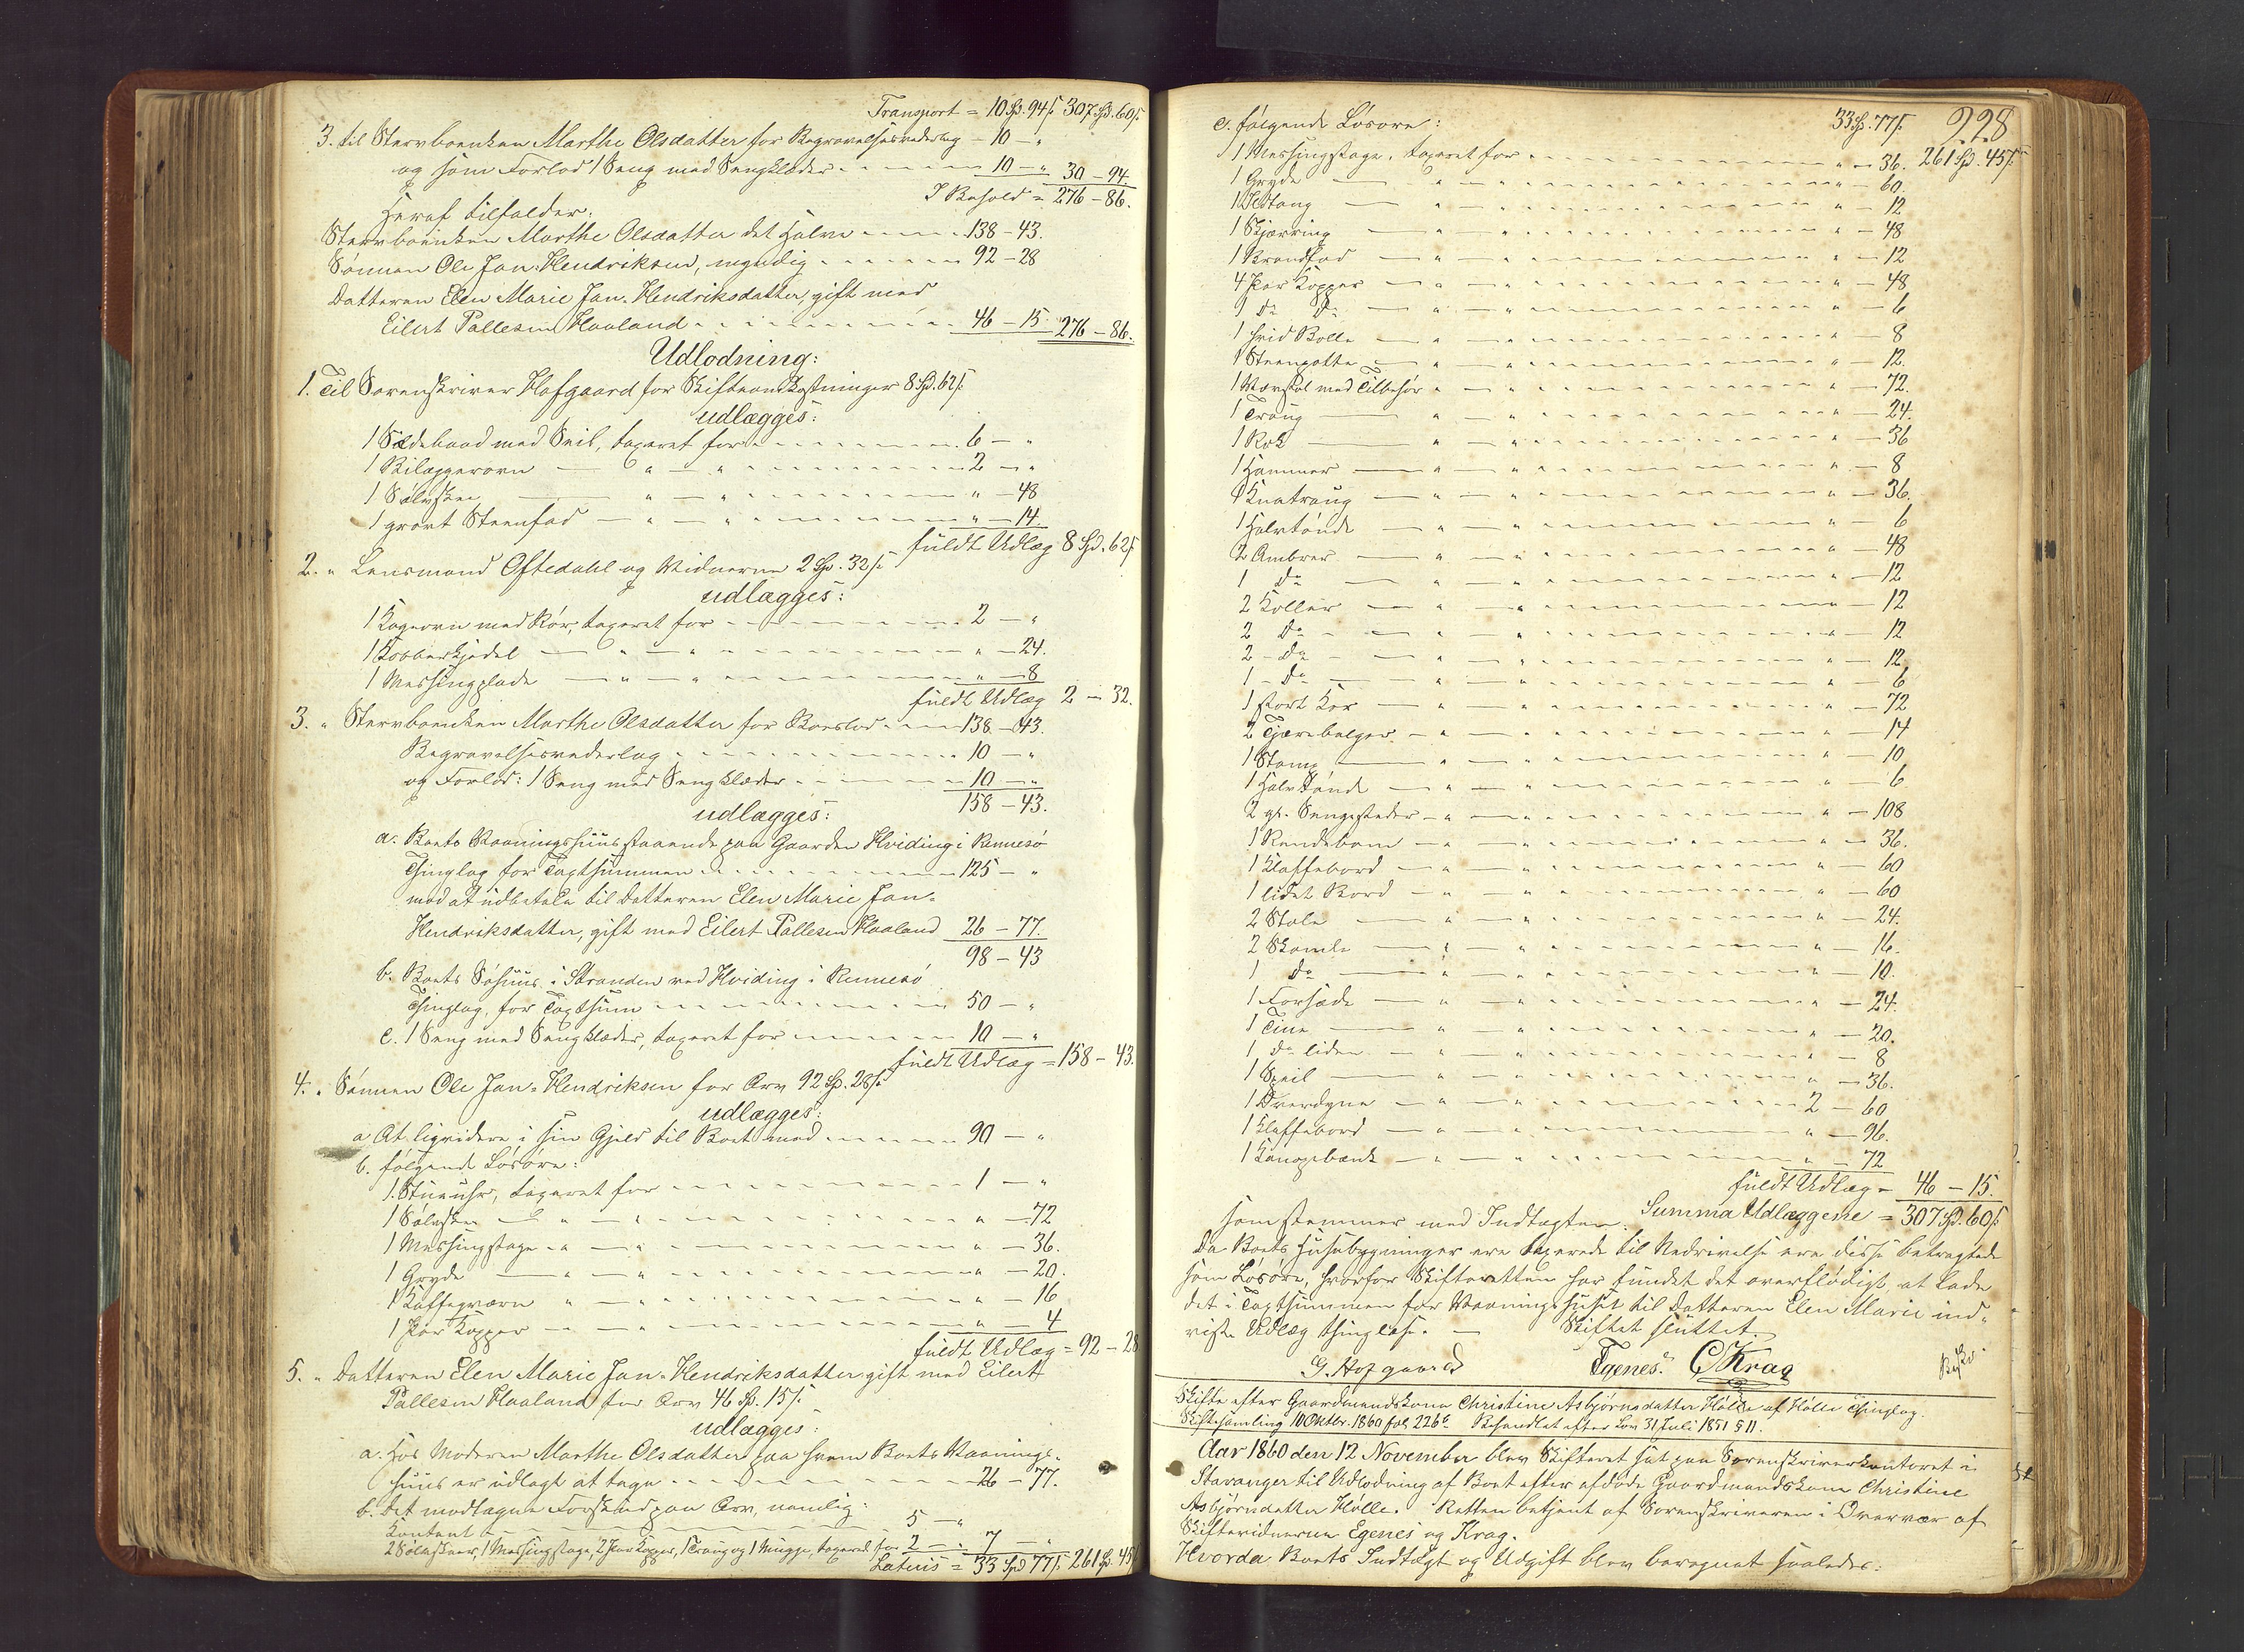 Transport = 10 Sp. 94 s. 307 Sp. 60 s.
3. til Stervboenken Marthe Olsdatter for Begravelsesvederlag - 10 - "
og som Forlod 1 Seng med Sengklæder - 10 - " 30 - 94
I Behold = 276 - 86.
Heraf tilfalder:
Stervboenken Marthe Olsdatter det Halve - 138 - 43.
Sønnen Ole Jan-Hendriksen, myndig - 92 - 28
Datteren Elen Marie Jan-Hendriksdatter, gift med
Eilert Pallesen Haaland - 46 - 15. 276 - 86.
Udlodning:
1. Til Sorenskriver Hofgaard for Skifteomkostninger 8 Sp. 62 s.
udlægges:
1 Sædebaad med Seil, taxeret for - 6 - "
1 Bilæggerovn — " — " - 2 - "
1 Sølvskee — " — " - " - 48
1 grovt Steenfad — " — " - " - 14.
fuldt Udlæg 8 Sp. 62 s.
2. " Lensmand Oftedahl og Vidnerne 2 Sp. 32 s.
udlægges:
1 Kogeovn med Rør, taxeret for - 2 - "
1 Kobberkjedel — " — " - " - 24.
1 Messingplade — " — " - " - 8
fuldt Udlæg 2 - 32.
3. " Stervboenken Marthe Olsdatter for Boeslod - 138 - 43.
Begravelsesvederlag - 10 - "
og Forlod: 1 Seng med Sengklæder - 10 - "
158 - 43.
udlægges:
a. Boets Vaaningshuus staaende paa Gaarden Hviding i Rennesø
Thinglag for Taxtsummen - 125 - "
mod at udbetale til Datteren Elen Marie Jan-
Hendriksdatter, gift med Eilert Pallesen Haaland 26 - 77.
98 - 43
b. Boets Søhuus i Stranden ved Hviding i Rennesø
Thinglag, for Taxtsum - 50 - "
c. 1 Seng med Sengklæder, taxeret for - 10 - "
fuldt Udlæg = 158 - 43.
4. " Sønnen Ole Jan-Hendriksen for Arv 92 Sp. 28 s.
udlægges:
a At liqvidere i sin Gjeld til Boet med - 90 - "
b. følgende Løsøre:
1 Stueuhr, taxeret for - 1 - "
1 Sølvskee — " — " - " - 72
1 Messingstage - " — " - " - 36.
1 Gryde — " — " - " - 20.
1 Kaffeqværn " — " - " - 16
1 Par Kopper — " — " - " - 4
fuldt Udlæg = 92 - 28
5. " Datteren Elen Marie Jan-Hendriksdatter gift med Eilert
Pallesen Haaland for Arv 46 Sp. 15 s.
udlægges:
a. Hos Moderen Marthe Olsdatter paa hvem Boets Vaanings-
huus er udlagt at tage - 26 - 77.
b. Det modtagne Forskud paa Arv, nemlig:
Kontant - 5 - "
2 Sølvskeer, 1 Messingstage, 2 Par Kopper, 1 Traug og 1 Mugge, taxeret for 2 - " 7 - "
Latuis = 33 Spd 77 s. 261 Sp. 45 s.
228
c. følgende Løsøre: 33 Sp. 77 s.
1 Messingstage, taxeret for - " - 36. 261 Sp. 45 s.
1 Gryde — " - " - 60.
1 Ildtang — " - " - 12
1 Skjærring — " - " - 48
1 Brandfad — " - " - 12
4 Par Kopper — " - " - 48
1 Do Do — " - " - 6
1 hvid Bolle — " - " - 8
1 Steenpotte — " - " - 12
1 Vævstol med Tilbehør " - " - 72.
1 Traug — " - " - 24.
1 Rok — " - " - 36
1 Hammer — " - " - 8
1 Knatraug — " - " - 36.
1 Halvtønde — " - " - 6
2 Ambrer — " - " - 48
1 Do — " - " - 12
2 Koller — " - " - 12
2 Do — " - " - 12
2 - Do — " - " - 12
1 - Do — " - " - 6
1 stort Kar — " - " - 72
2 Tjærebalger — " - " - 14
1 Stamp — " - " - 10
1 Halvtønde — " - " - 6
2 gl. Sengesteder - " - " - 108
1 Rendebom — " - " - 36.
1 Klaffebord — " - " - 60
1 lidet Bord — " - " - 60
2 Stole — " - " - 24.
2 Skamle — " - " - 16.
1 Do — " - " - 10.
1 Forsæde — " - " - 24.
1 Tine — " - " - 20.
1 Do liden — " - " - 8
1 Speil — " - " - 36.
1 Overdyne — " - 2 - 60
1 Klaffebord — " - " - 96.
1 Kanapebænk — " - " - 72
fuldt Udlæg = 46 - 15.
Summa Udlæggene = 307 Sp. 60 s.
som stemmer med Indtægten.
Da Boets Huusbygninger ere taxerede til Nedrivelse ere disse betragtede
som Løsøre, hvorfor Skifteretten har fundet det overflødigt, at lade
det i Taxtsummen for Vaaningshuset til Datteren Elen Marie ind-
viste Udlæg thinglæse. — Skiftet sluttet.
G. Hofgaard Egenes. C Krag
Skifte efter Gaardmandskone Christine Asbjørnsdatter Hølle af Hølle Thinglag.
Skiftesamling 10 Oktbr. 1860 fol. 226 b. Behandlet efter Lov 31 Juli 1851 § 11.
Aar 1860 den 12 November blev Skifteret sat paa Sorenskriverkontoret i
Stavanger til Udlodning af Boet efter afdøde Gaardmandskone Christine
Asbjørndatter Hølle. Retten betjent af Sorenskriveren i Overvær af
Skiftevidnerne Egenes og Krag.
Hvorda Boets Indtægt og Udgift blev beregnet saaledes: